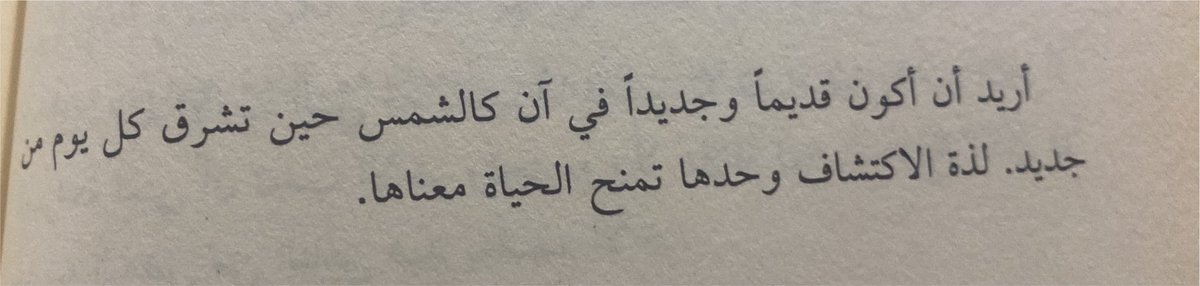 أريد أن أكون قديماً وجديداً في آن كالشمس حين تشرق كل يوم من
جديد. لذة الاكتشاف وحدها تمنح الحياة معناها.